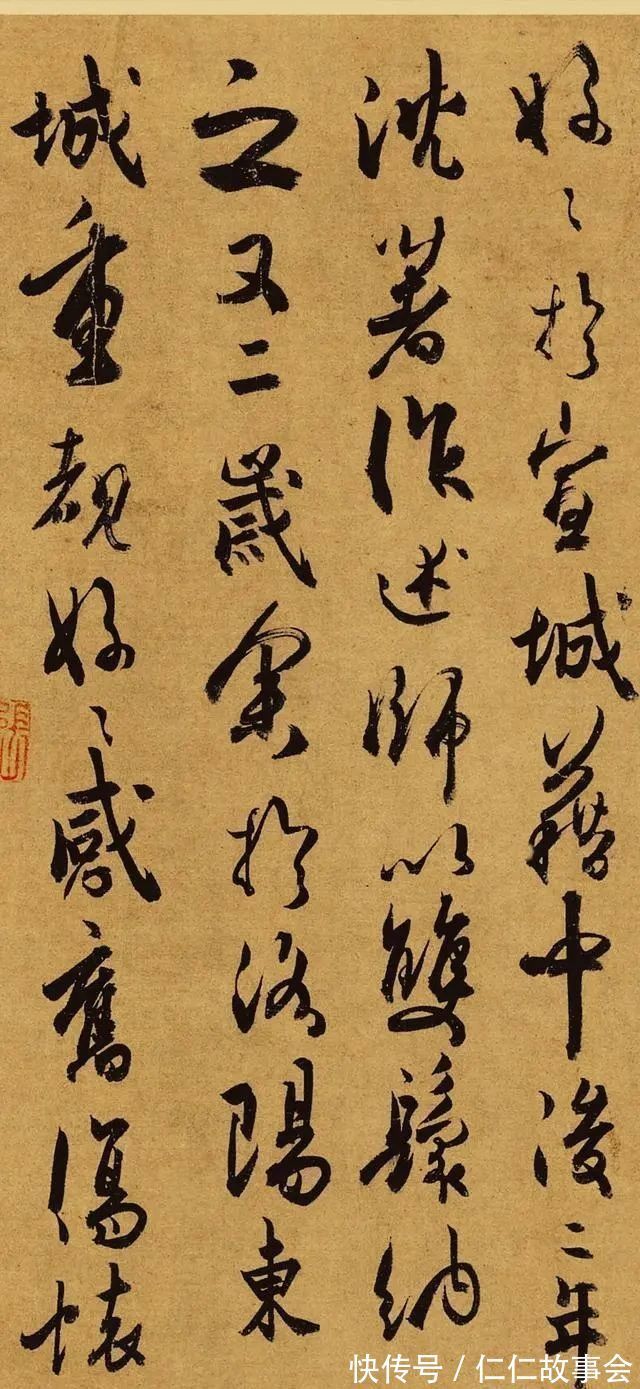 好〻於宣城籍中後二年
沈著作述師以雙鬟納
之又二歲余於洛陽東
城重覩好〻感舊傷懷
快传号 / 仁仁故事会